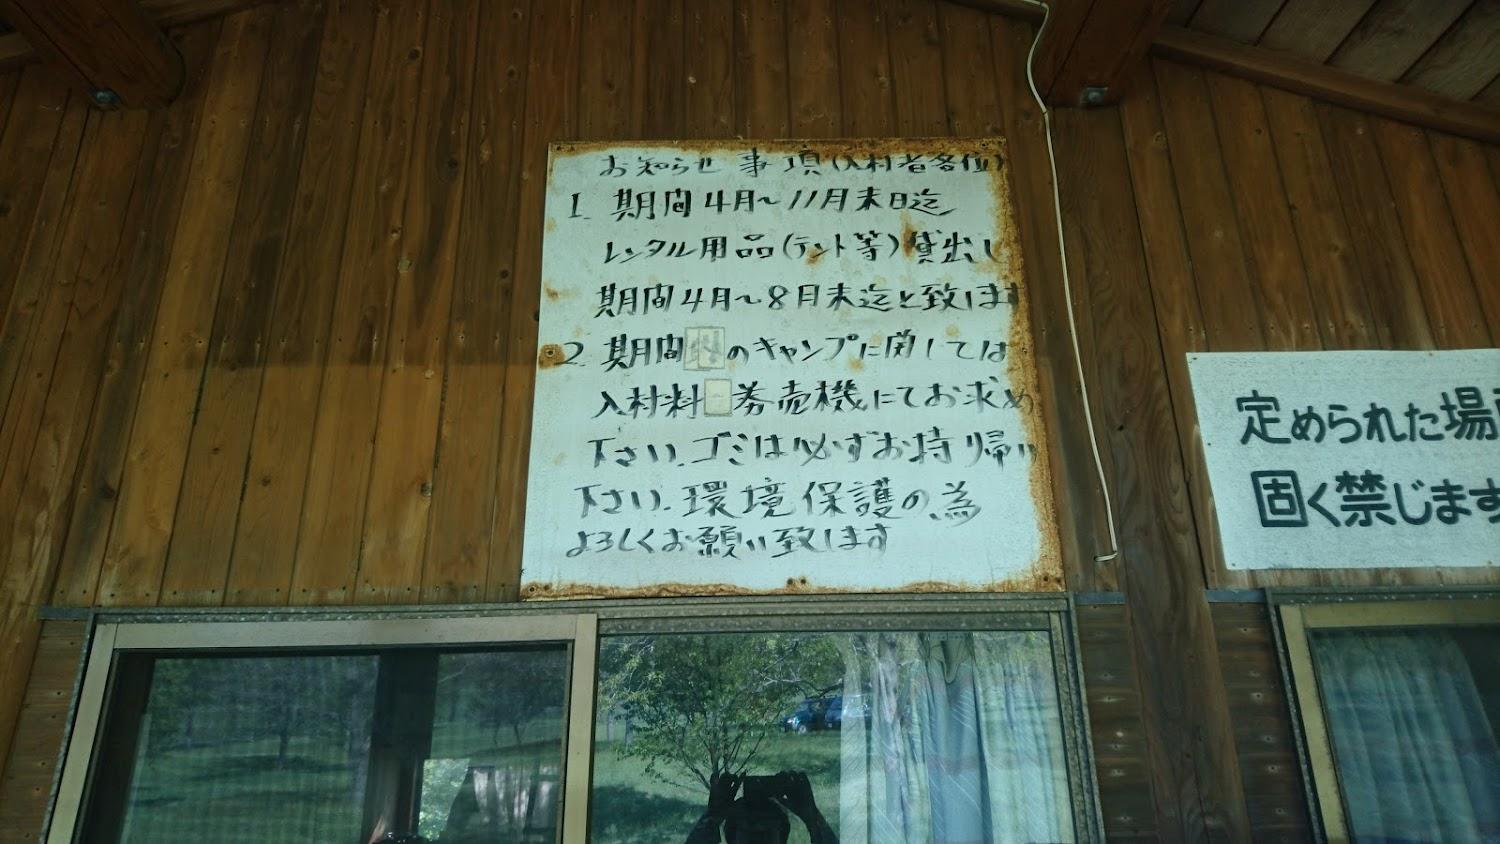 お知らせ事項(入村者各位)
1. 期間4月～11月末日迄
レンタル用品(テント等)貸出し
期間4月～8月末迄と致します
2. 期間のキャンプに関しては
入村料券売機にてお求め
下さい.ゴミは必ずお持帰り
下さい.環境保護の為
よろしくお願い致します
定められた場
固く禁じます